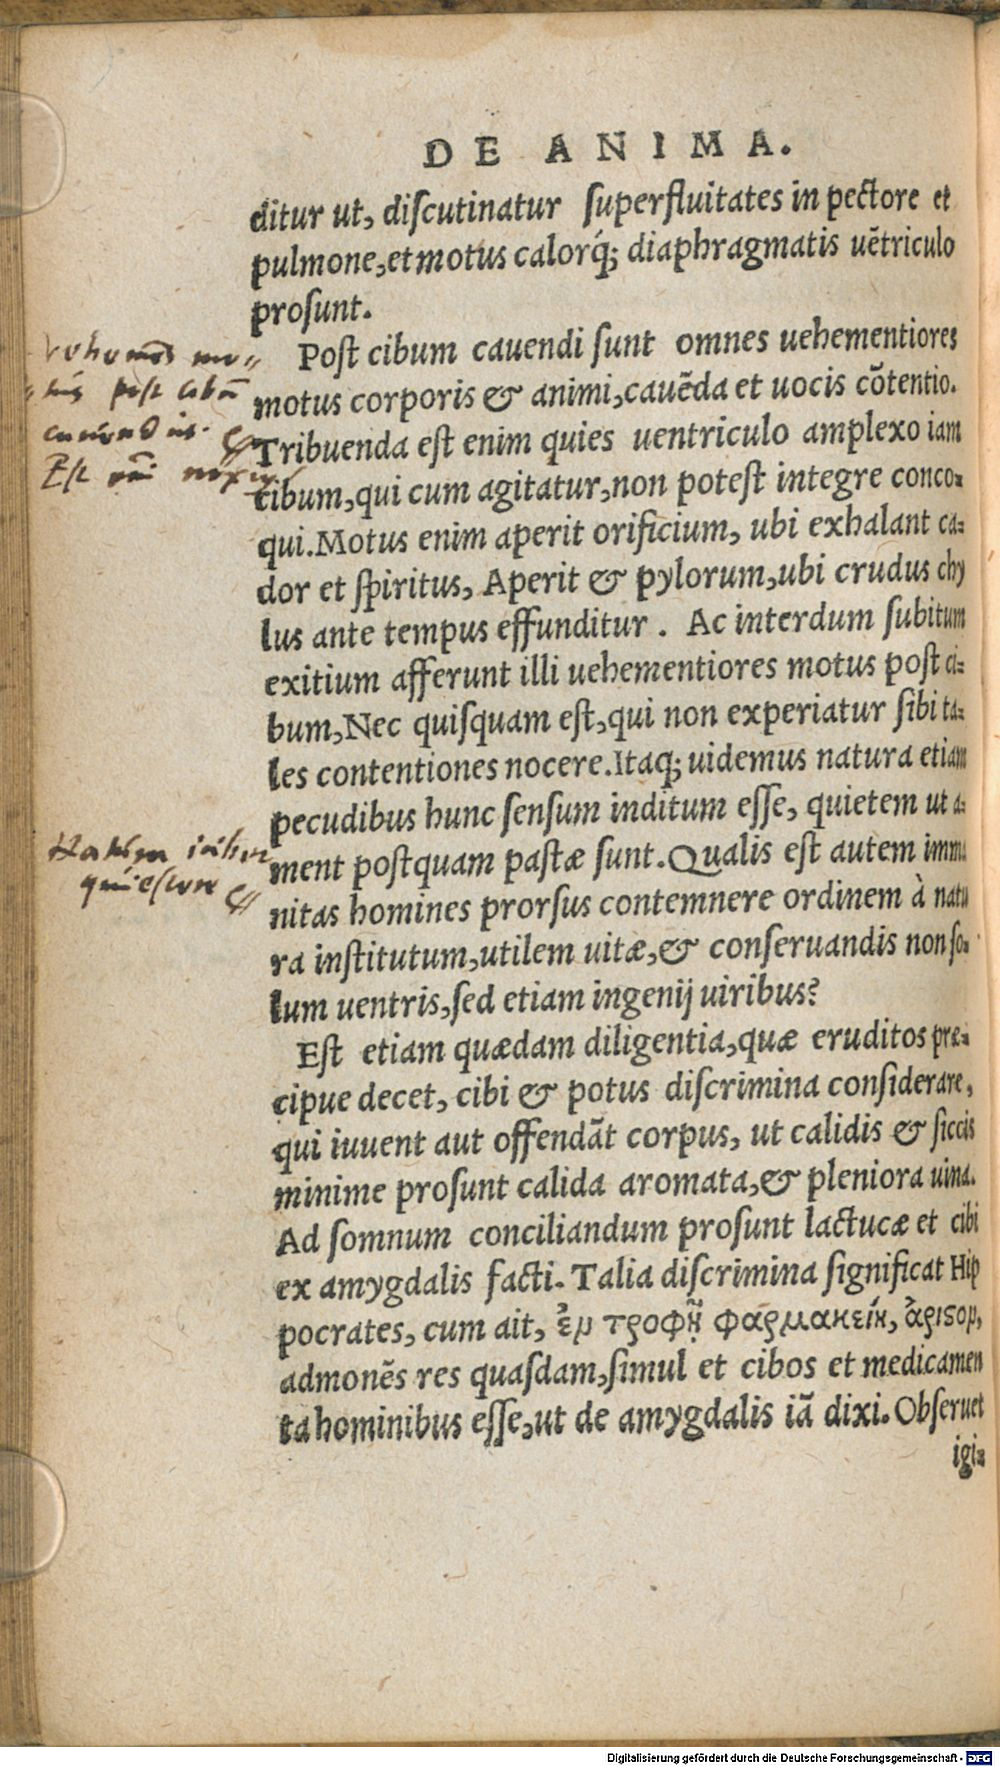 DE ANIMA.
ditur ut, discutinatur superfluitates in pectore et
pulmone, et motus calorq́; diaphragmatis uẽtriculo
prosunt.
Post cibum cauendi sunt omnes uehementiores
motus corporis & animi, cauẽda et uocis cõtentio.
Tribuenda est enim quies uentriculo amplexo iam
cibum, qui cum agitatur, non potest integre conco-
qui. Motus enim aperit orificium, ubi exhalant ca-
dor et spiritus, Aperit & pylorum, ubi crudus chy
lus ante tempus effunditur. Ac interdum subitum
exitium afferunt illi uehementiores motus post ci-
bum, Nec quisquam est, qui non experiatur sibi ta-
les contentiones nocere. Itaq; uidemus natura etiam
pecudibus hunc sensum inditum esse, quietem ut a-
ment postquam pastæ sunt. Qualis est autem imma
nitas homines prorsus contemnere ordinem à natu
ra institutum, utilem uitæ, & conseruandis non so-
lum uentris, sed etiam ingenij uiribus?
Est etiam quædam diligentia, quæ eruditos præ-
cipue decet, cibi & potus discrimina considerare,
qui iuuent aut offendãt corpus, ut calidis & siccis
minime prosunt calida aromata, & pleniora uina.
Ad somnum conciliandum prosunt lactucæ et cibi
ex amygdalis facti. Talia discrimina significat Hip
pocrates, cum ait, ἐν τροφῇ φαρμακείη, ἄριστον,
admonẽs res quasdam, simul et cibos et medicamen
ta hominibus esse, ut de amygdalis iã dixi. Obseruet
igi-
post cibũ
Est
Natura
Digitalisierung gefördert durch die Deutsche Forschungsgemeinschaft - DFG